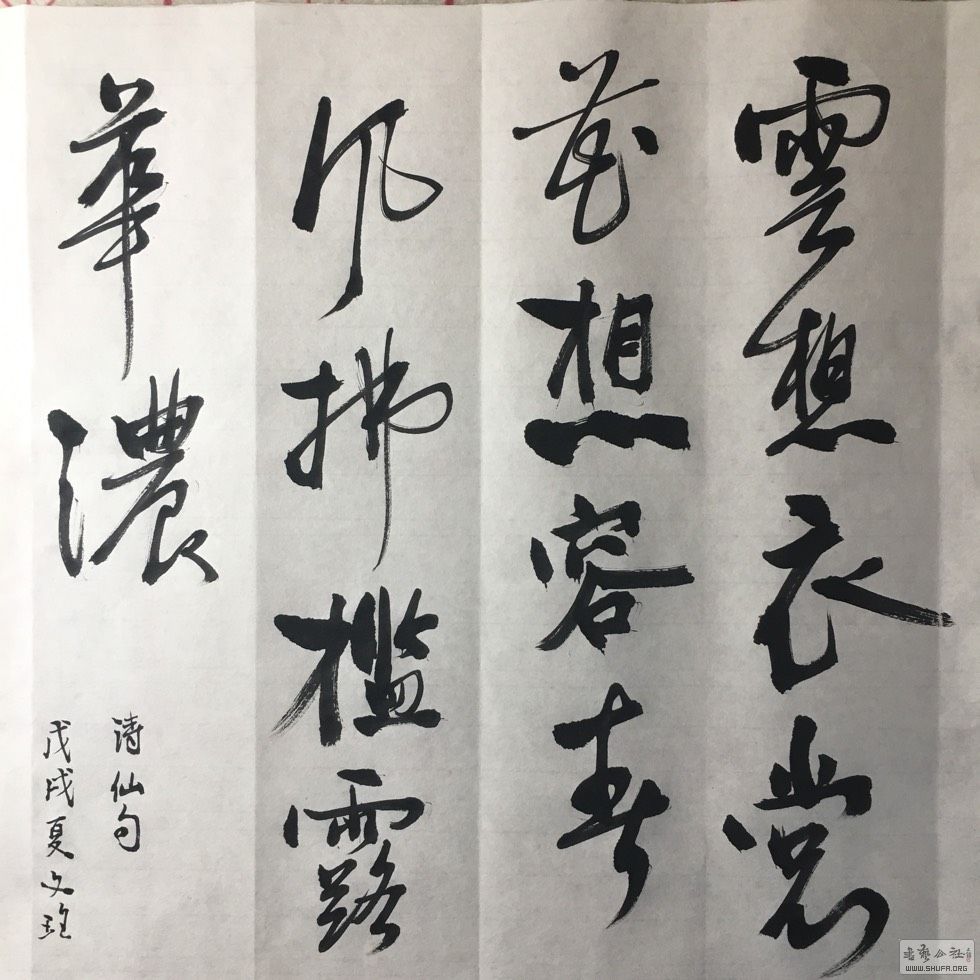 雲想衣裳
花想容春
风拂檻露
華濃
诗仙句
戊戌夏文
书艺公社
WWW.SHUFA.ORG